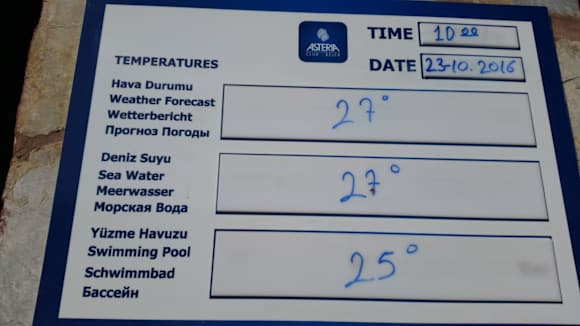 ASTERIA
CLUB BELEK
TIME 10 00
DATE 23-10.2016
TEMPERATURES
Hava Durumu
Weather Forecast
Wetterbericht
Прогноз Погоды
27°
Deniz Suyu
Sea Water
Meerwasser
Морская Вода
27°
Yüzme Havuzu
Swimming Pool
Schwimmbad
Бассейн
25°